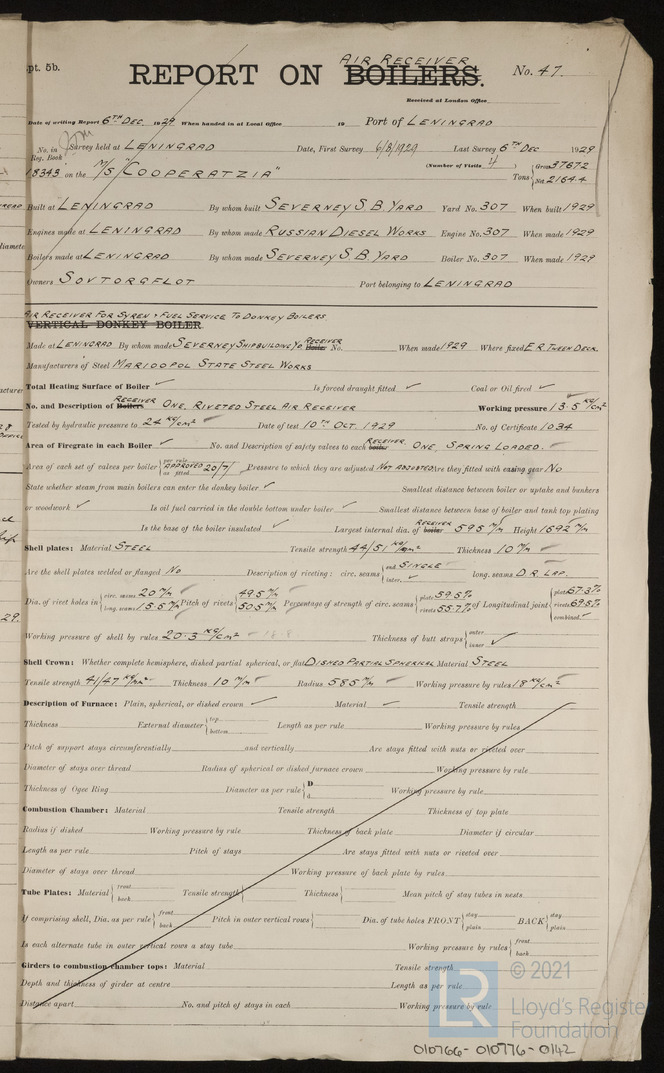 pt. 5b.
AIR RECEIVER
REPORT ON BOILERS. No. 47.
Received at London Office
Date of writing Report 6TH DEC 1929 When handed in at Local Office 19 Port of LENINGRAD
No. in Reg. Book Survey held at LENINGRAD Date, First Survey 6/8/1929 Last Survey 6TH DEC 1929
(Number of Visits 4)
18343 on the M/S "COOPERATZIA" Tons { Gross 37672 Net 2164.4
Built at LENINGRAD By whom built SEVERNEY S. B. YARD Yard No. 307 When built 1929
Engines made at LENINGRAD By whom made RUSSIAN DIESEL WORKS Engine No. 307 When made 1929
Boilers made at LENINGRAD By whom made SEVERNEY S. B. YARD Boiler No. 307 When made 1929
Owners SOVTORGFLOT Port belonging to LENINGRAD
AIR RECEIVER FOR SYREN & FUEL SERVICE TO DONKEY BOILERS
VERTICAL DONKEY BOILER.
Made at LENINGRAD By whom made SEVERNEY SHIPBUILDING YD. RECEIVER Boiler No. When made 1929 Where fixed E.R. TWEEN DECK
Manufacturers of Steel MARIOOPOL STATE STEEL WORKS
Total Heating Surface of Boiler ✓ Is forced draught fitted ✓ Coal or Oil fired ✓
No. and Description of RECEIVER Boilers ONE, RIVETED STEEL AIR RECEIVER Working pressure 13.5 KG/cm²
Tested by hydraulic pressure to 24 KG/cm² Date of test 10TH OCT. 1929 No. of Certificate 1034
Area of Firegrate in each Boiler ✓ No. and Description of safety valves to each RECEIVER boiler ONE, SPRING LOADED.
Area of each set of valves per boiler { per rule as fitted APPROVED 20/7 Pressure to which they are adjusted NOT ADJUSTED Are they fitted with easing gear NO
State whether steam from main boilers can enter the donkey boiler ✓ Smallest distance between boiler or uptake and bunkers
or woodwork ✓ Is oil fuel carried in the double bottom under boiler ✓ Smallest distance between base of boiler and tank top plating
Is the base of the boiler insulated ✓ Largest internal dia. of RECEIVER boiler 595 m/m Height 1692 m/m
Shell plates: Material STEEL Tensile strength 44/51 KG/mm² Thickness 10 m/m
Are the shell plates welded or flanged NO Description of riveting: circ. seams { end SINGLE inter. ✓ long. seams D.R. LAP.
Dia. of rivet holes in { circ. seams 20 m/m long. seams 15.5 m/m Pitch of rivets { 49.5 m/m 50.5 m/m Percentage of strength of circ. seams { plate 59.5% rivets 55.7% of Longitudinal joint { plate 67.3% rivets 69.5% combined ✓
Working pressure of shell by rules 20.3 KG/cm² Thickness of butt straps { outer inner ✓
Shell Crown: Whether complete hemisphere, dished partial spherical, or flat DISHED PARTIAL SPHERICAL Material STEEL
Tensile strength 41/47 KG/mm² Thickness 10 m/m Radius 585 m/m Working pressure by rules 18 KG/cm²
Description of Furnace: Plain, spherical, or dished crown ✓ Material ✓ Tensile strength
Thickness External diameter { top bottom Length as per rule Working pressure by rules
Pitch of support stays circumferentially and vertically Are stays fitted with nuts or riveted over
Diameter of stays over thread Radius of spherical or dished furnace crown Working pressure by rule
Thickness of Ogee Ring Diameter as per rule { D d Working pressure by rule
Combustion Chamber: Material Tensile strength Thickness of top plate
Radius if dished Working pressure by rule Thickness of back plate Diameter if circular
Length as per rule Pitch of stays Are stays fitted with nuts or riveted over
Diameter of stays over thread Working pressure of back plate by rules
Tube Plates: Material { front back Tensile strength Thickness Mean pitch of stay tubes in nests
If comprising shell, Dia. as per rule { front back Pitch in outer vertical rows Dia. of tube holes FRONT { stay plain BACK { stay plain
Is each alternate tube in outer vertical rows a stay tube Working pressure by rules { front back
Girders to combustion chamber tops: Material Tensile strength
Depth and thickness of girder at centre Length as per rule
Distance apart No. and pitch of stays in each Working pressure by rule
LR
© 2021
Lloyd's Register
Foundation
010766-010776-0142